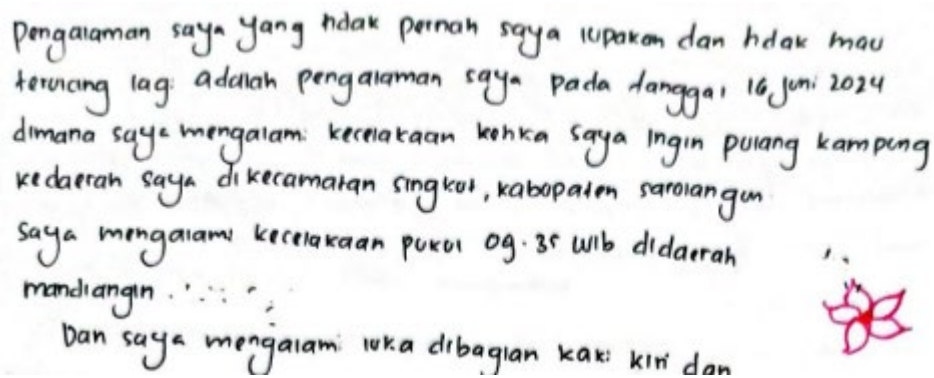 Pengalaman saya yang tidak pernah saya lupakan dan tidak mau
terulang lagi adalah pengalaman saya pada tanggal 16 Juni 2024
dimana saya mengalami kecelakaan ketika saya Ingin pulang kampung
kedaerah saya dikecamatan singkut, kabupaten sarolangun.
Saya mengalami kecelakaan pukul 09.35 WIB didaerah
mandiangin.
Dan saya mengalami luka dibagian kaki kiri dan